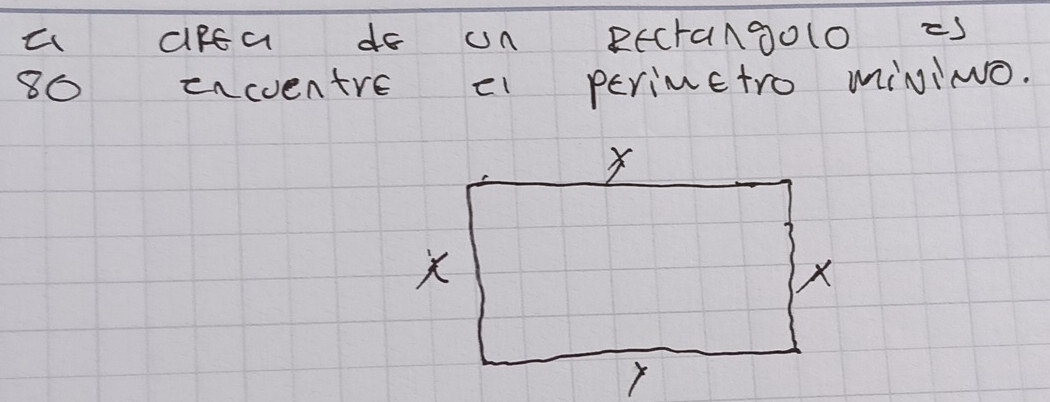 El area de un Rectangolo es
80 encuentre el perimetro minimo.
y
x x
y